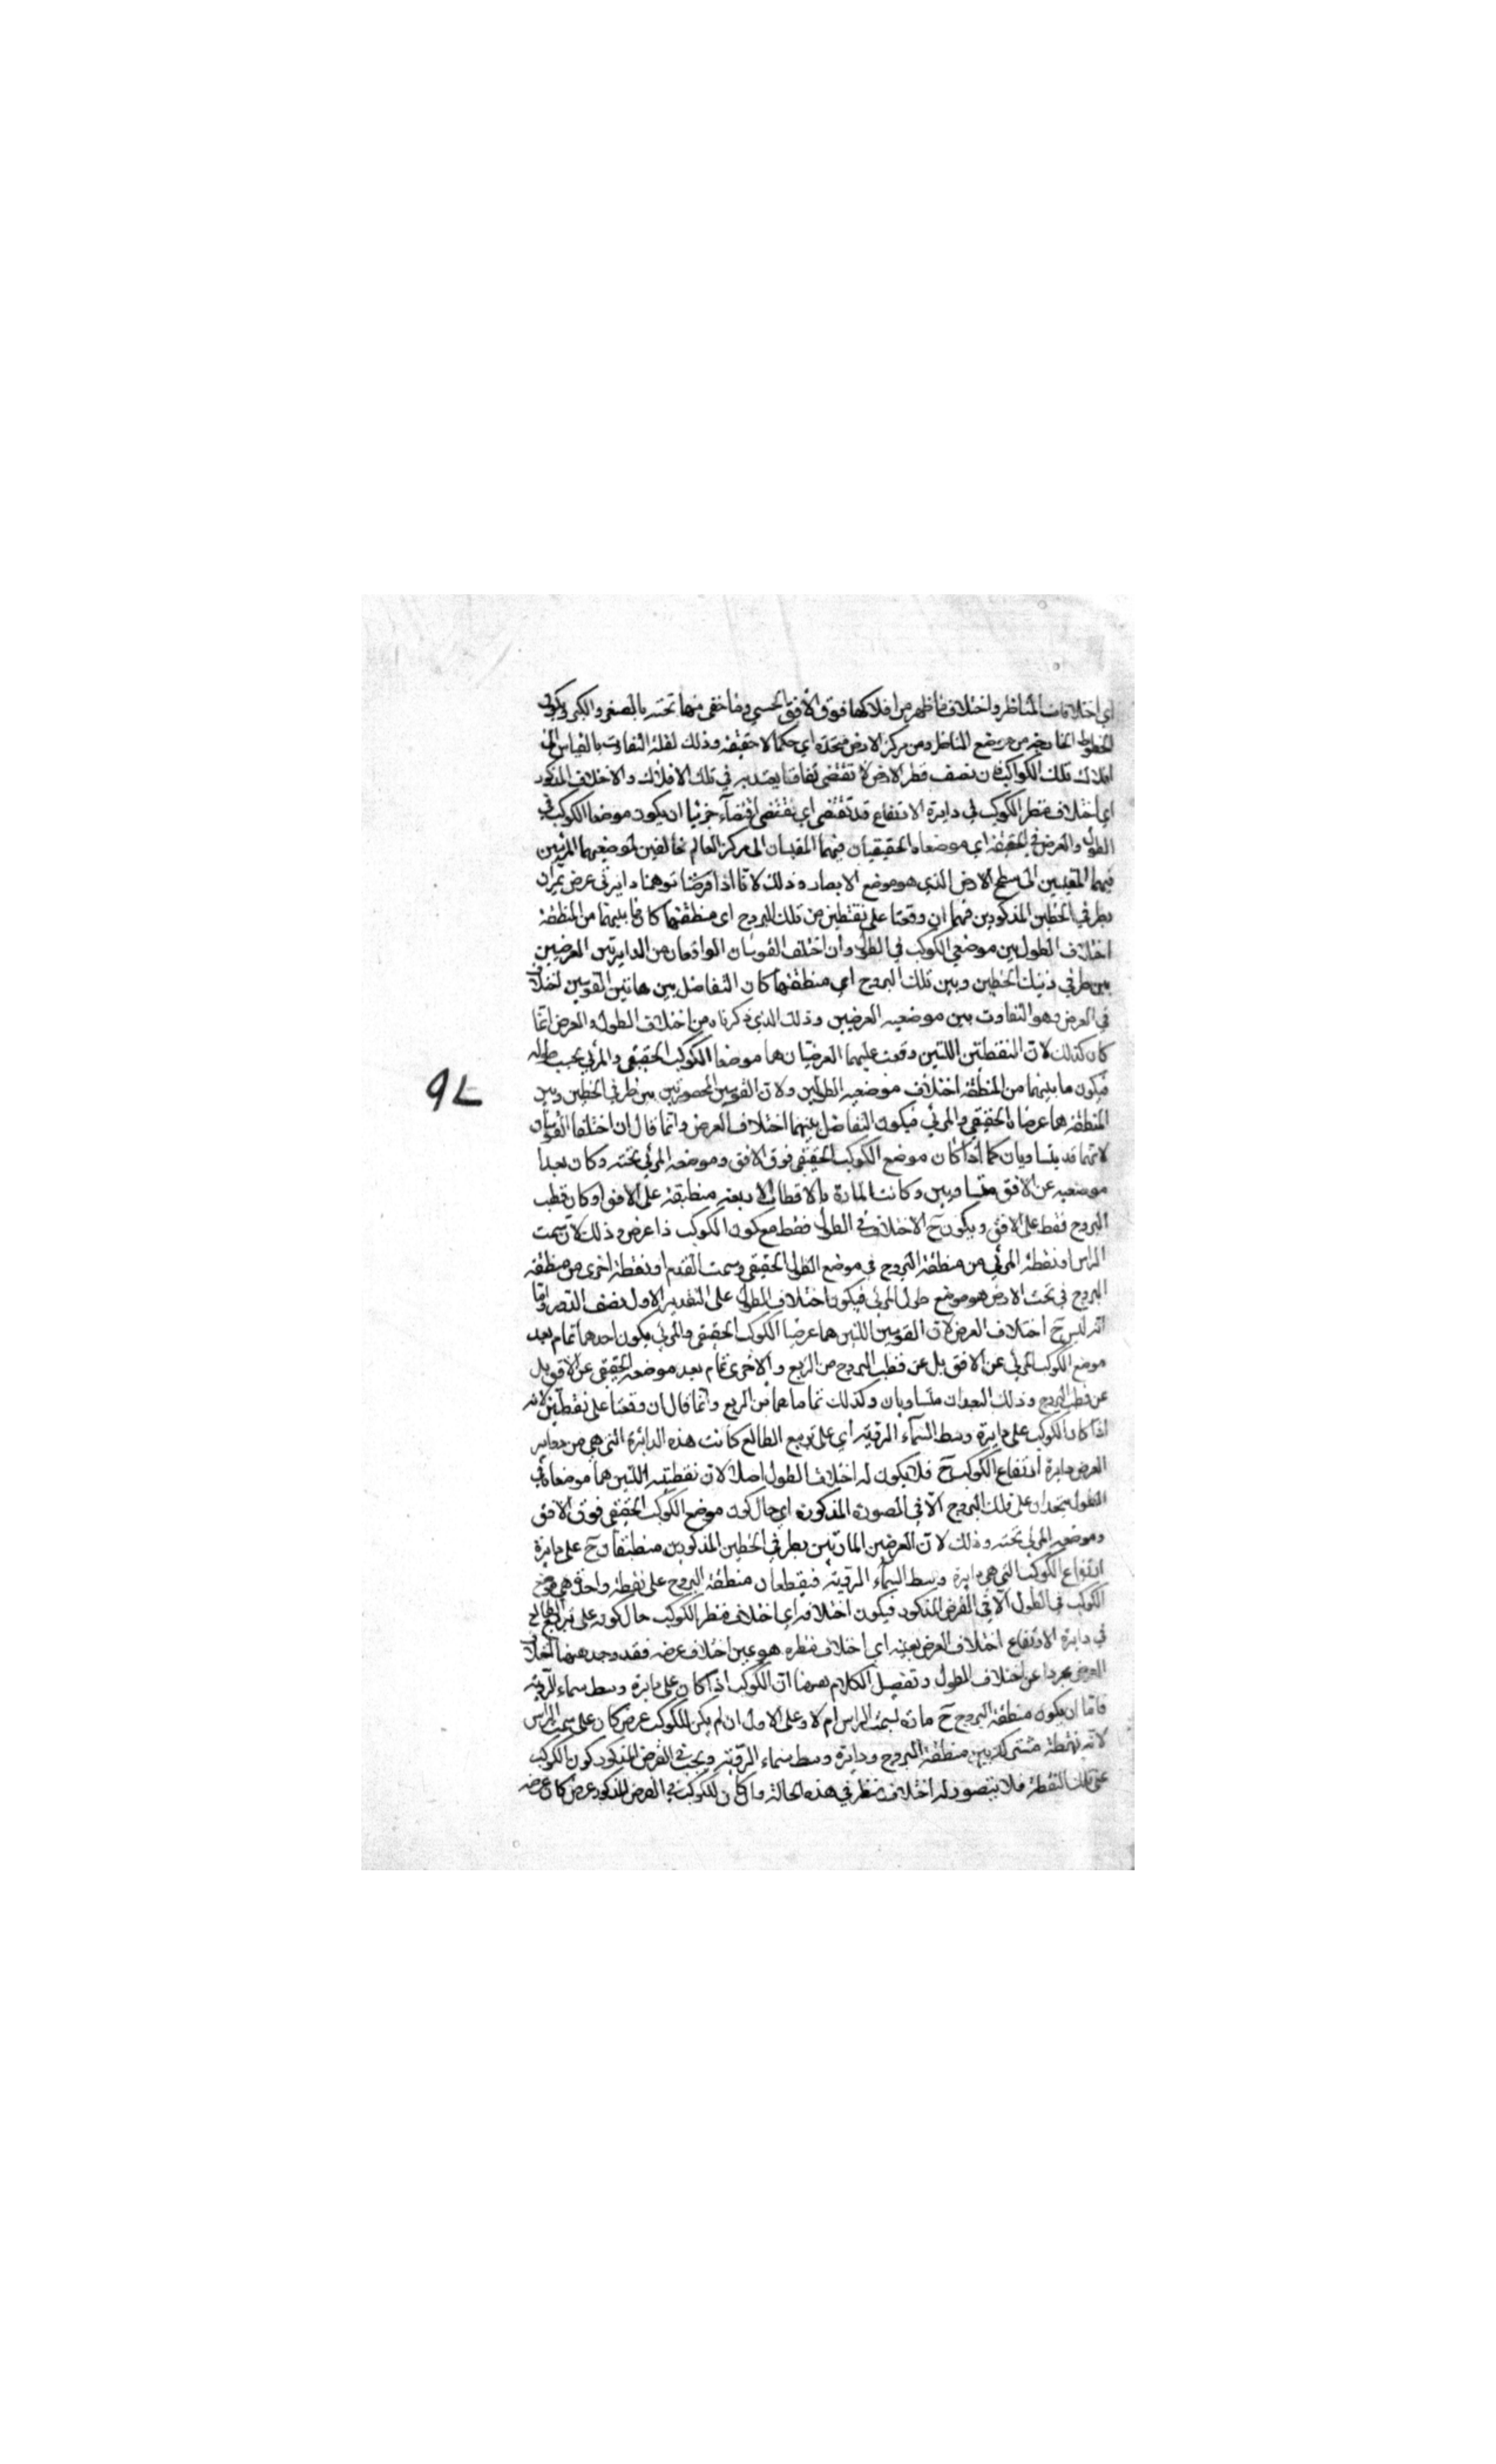 اي اختلافات المناظر واختلاف ما ظهر من افلاكها فوق الافق الحسي وما خفي منها تحته بالصغر والكبر ويكون
الخطوط الخارجة من موضع الناظر ومن مركز الارض متحدة اي حكما لا حقيقة وذلك لقلة التفاوت بالقياس الى
افلاك تلك الكواكب فان نصف قطر الارض لا تقتضي تفاوتا يعتد به في تلك الافلاك والاختلاف المذكور
اي اختلاف منظر الكوكب في دايرة الارتفاع قد تقتضي اي يقتضي اقتضاء جزئيا ان يكون موضعا الكوكب في
الطول والعرض في الحقيقة اي موضعاه الحقيقيان فيهما المقيسان الى مركز العالم مخالفين لموضعيهما المرئيين
فيهما المقيسين الى سطح الارض الذي هو موضع الابصار وذلك لانا اذا فرضنا توهمنا دايرتي عرض تمران
بطرفي الخطين المذكورين فهما ان وقعتا على نقطتين من تلك البروج اى منطقتها كان ما بينهما من المنطقة
اختلاف الطول بين موضعي الكوكب في الطول وان اختلف القوسان الواقعان من الدايرتين العرضيتين
بين طرفي ذينك الخطين وبين تلك البروج اي منطقتها كان التفاضل بين هاتين القوسين اختلافا
في العرض وهو التفاوت بين موضعيه العرضيين وذلك الذي ذكرناه من اختلاف الطول والعرض انما
كان كذلك لان النقطتين اللتين وقعت عليهما العرضيتان هما موضعا الكوكب الحقيقي والمرئي بحسب طوله
فيكون ما بينهما من المنطقة اختلاف موضعيه الطوليين ولان القوسين المحصورتين بين طرفي الخطين وبين
المنطقة هما عرضاه الحقيقي والمرئي فيكون التفاضل بينهما اختلاف العرض وانما قال ان اختلفا القوسان
لانهما قد يتساويان كما اذا كان موضع الكوكب الحقيقي فوق الافق وموضعه المرئي تحته وكان بعدا
موضعيه عن الافق متساويين وكانت المارة بالاقطاب الاربعة منطبقة على الافق او كان قطب
البروج فقط على الافق ويكون ح الاختلاف في الطول فقط مع كون الكوكب ذا عرض وذلك لان سمت
الراس او نقطة المرئي من منطقة البروج في موضع الطول الحقيقي وسمت القدم او نقطة اخرى من منطقة
البروج في تحت الارض هو موضع طول المرئي فيكون اختلاف الطول على التقدير الاول نصف الدور واما
انه ليس ح اختلاف العرض لان القوسين اللتين هما عرضا الكوكب الحقيقي والمرئي يكون احدهما تمام بعد
موضع الكوكب المرئي عن الافق بل عن قطب البروج من الربع والاخرى تمام بعد موضعه الحقيقي عن الافق بل
عن قطب البروج وذلك البعدان متساويان وكذلك تماماهما من الربع وانما قال ان وقعتا على نقطتين لانه
اذا كان الكوكب على دايرة وسط السماء الرؤية اي على تربيع الطالع كانت هذه الدائرة التي هي من دواير
العرض دايرة ارتفاع الكوكب ح فلا يكون له اختلاف الطول اصلا لان نقطتيه اللتين هما موضعاه في
الطول يتحدان على فلك البروج الا في الصورة المذكورة اي حال كون موضع الكوكب الحقيقي فوق الافق
وموضعه المرئي تحته وذلك لان العرضيتين المارتين بطرفي الخطين المذكورين منطبقتان ح على دايرة
ارتفاع الكوكب التي هي دايرة وسط السماء الرؤية فيقطعان منطقة البروج على نقطة واحدة هي موضع
الكوكب في الطول الا في الفرض المذكور فيكون اختلافه اي اختلاف منظر الكوكب حال كونه على تربيع الطالع
في دايرة الارتفاع اختلاف العرض بعينه اي اختلاف منظره هو عين اختلاف عرضه فقد وجد ههنا اختلاف
العرض مجردا عن اختلاف الطول وتفصيل الكلام ههنا ان الكوكب اذا كان على دايرة وسط سماء الرؤية
فاما ان يكون منطقة البروج ح مارة بسمت الراس ام لا وعلى الاول ان لم يكن للكوكب عرض كان على سمت الراس
لانه نقطة مشتركة بين منطقة البروج ودايرة وسط سماء الرؤية ويجب في الفرض المذكور كون الكوكب
على تلك النقطة فلا يتصور له اختلاف منظر في هذه الحالة وان كان للكوكب في الفرض المذكور عرض كان عرضه